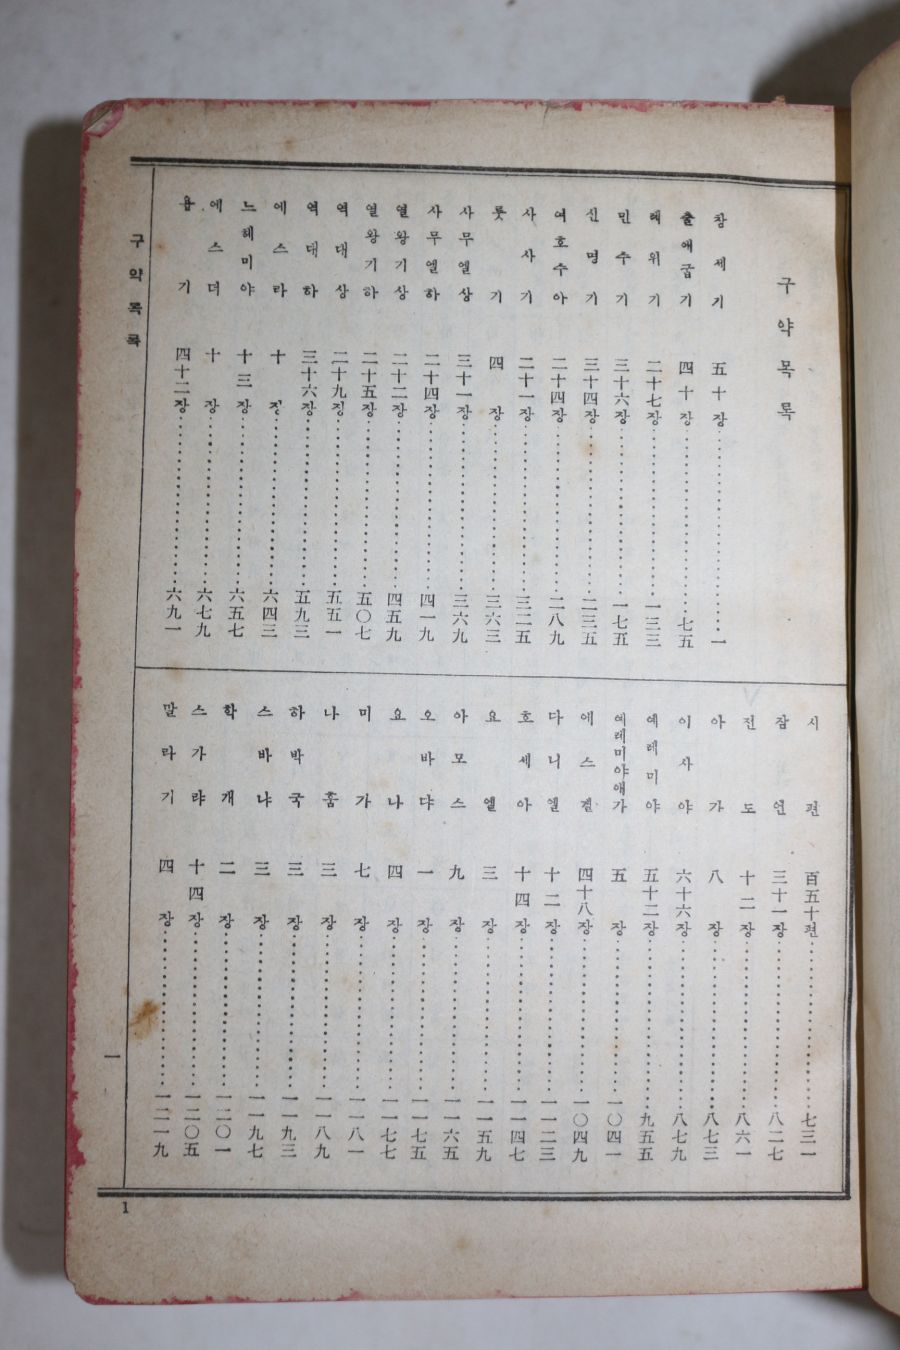 구약목록
창세기 五十장 一
출애굽기 四十장 七五
레위기 二十七장 一三三
민수기 三十六장 一七五
신명기 三十四장 二三五
여호수아 二十四장 二八九
사사기 二十一장 三二五
룻기 四장 三六三
사무엘상 三十一장 三六九
사무엘하 二十四장 四一九
열왕기상 二十二장 四五九
열왕기하 二十五장 五〇七
역대상 二十九장 五五一
역대하 三十六장 五九三
에스라 十장 六四三
느헤미야 十三장 六五七
에스더 十장 六七九
욥기 四十二장 六九一
시편 百五十편 七三一
잠언 三十一장 八二七
전도 十二장 八六一
아가 八장 八七三
이사야 六十六장 八七九
예레미야 五十二장 九五五
예레미야애가 五장 一〇四一
에스겔 四十八장 一〇四九
다니엘 十二장 一一二三
호세아 十四장 一一四七
요엘 三장 一一五九
아모스 九장 一一六五
오바댜 一장 一一七五
요나 四장 一一七七
미가 七장 一一八一
나훔 三장 一一八九
하박국 三장 一一九三
스바냐 三장 一一九七
학개 二장 一二〇一
스가랴 十四장 一二〇五
말라기 四장 一二一九
구약목록
一
1